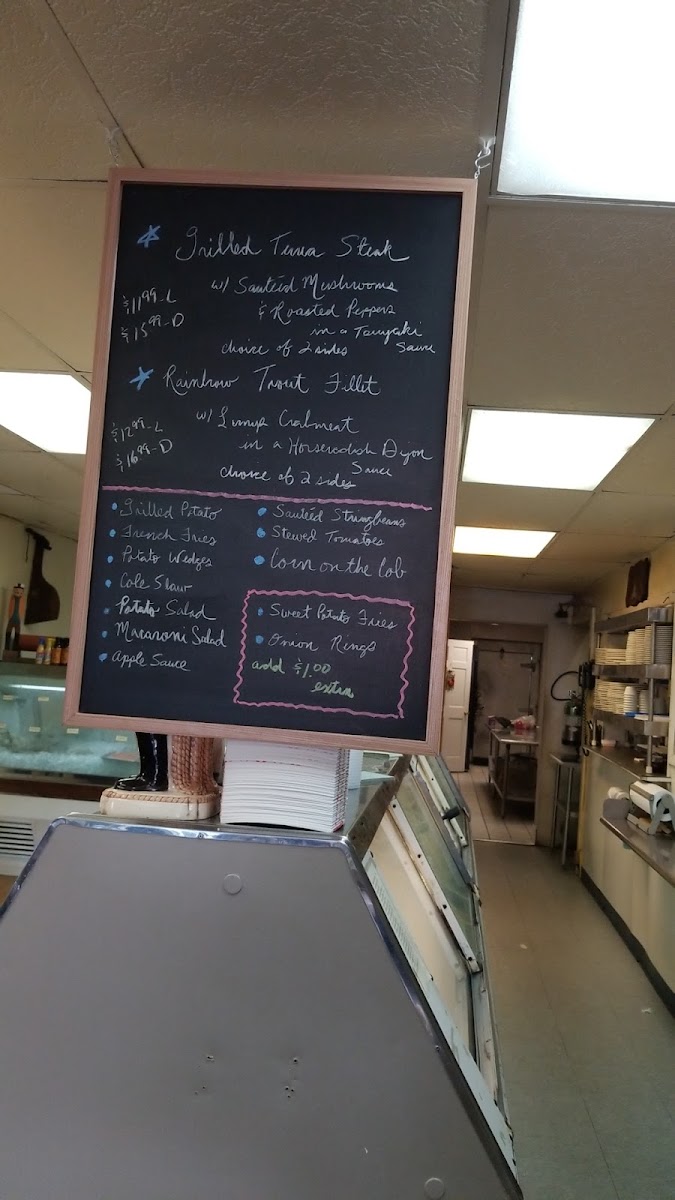 Grilled Tuna Steak
w/ Sautéed Mushrooms
$11.99-L
& Roasted Peppers
$15.99-D
in a Teriyaki
Sauce
choice of 2 sides
Rainbow Trout Fillet
w/ Lump Crabmeat
$12.99-L
in a Horseredish Dijon
$16.99-D
Sauce
choice of 2 sides
Grilled Potato
French Fries
Potato Wedges
Cole Slaw
Potato Salad
Macaroni Salad
Apple Sauce
Sautéed Stringbeans
Stewed Tomatoes
Corn on the Cob
Sweet Potato Fries
Onion Rings
add $1.00
extra